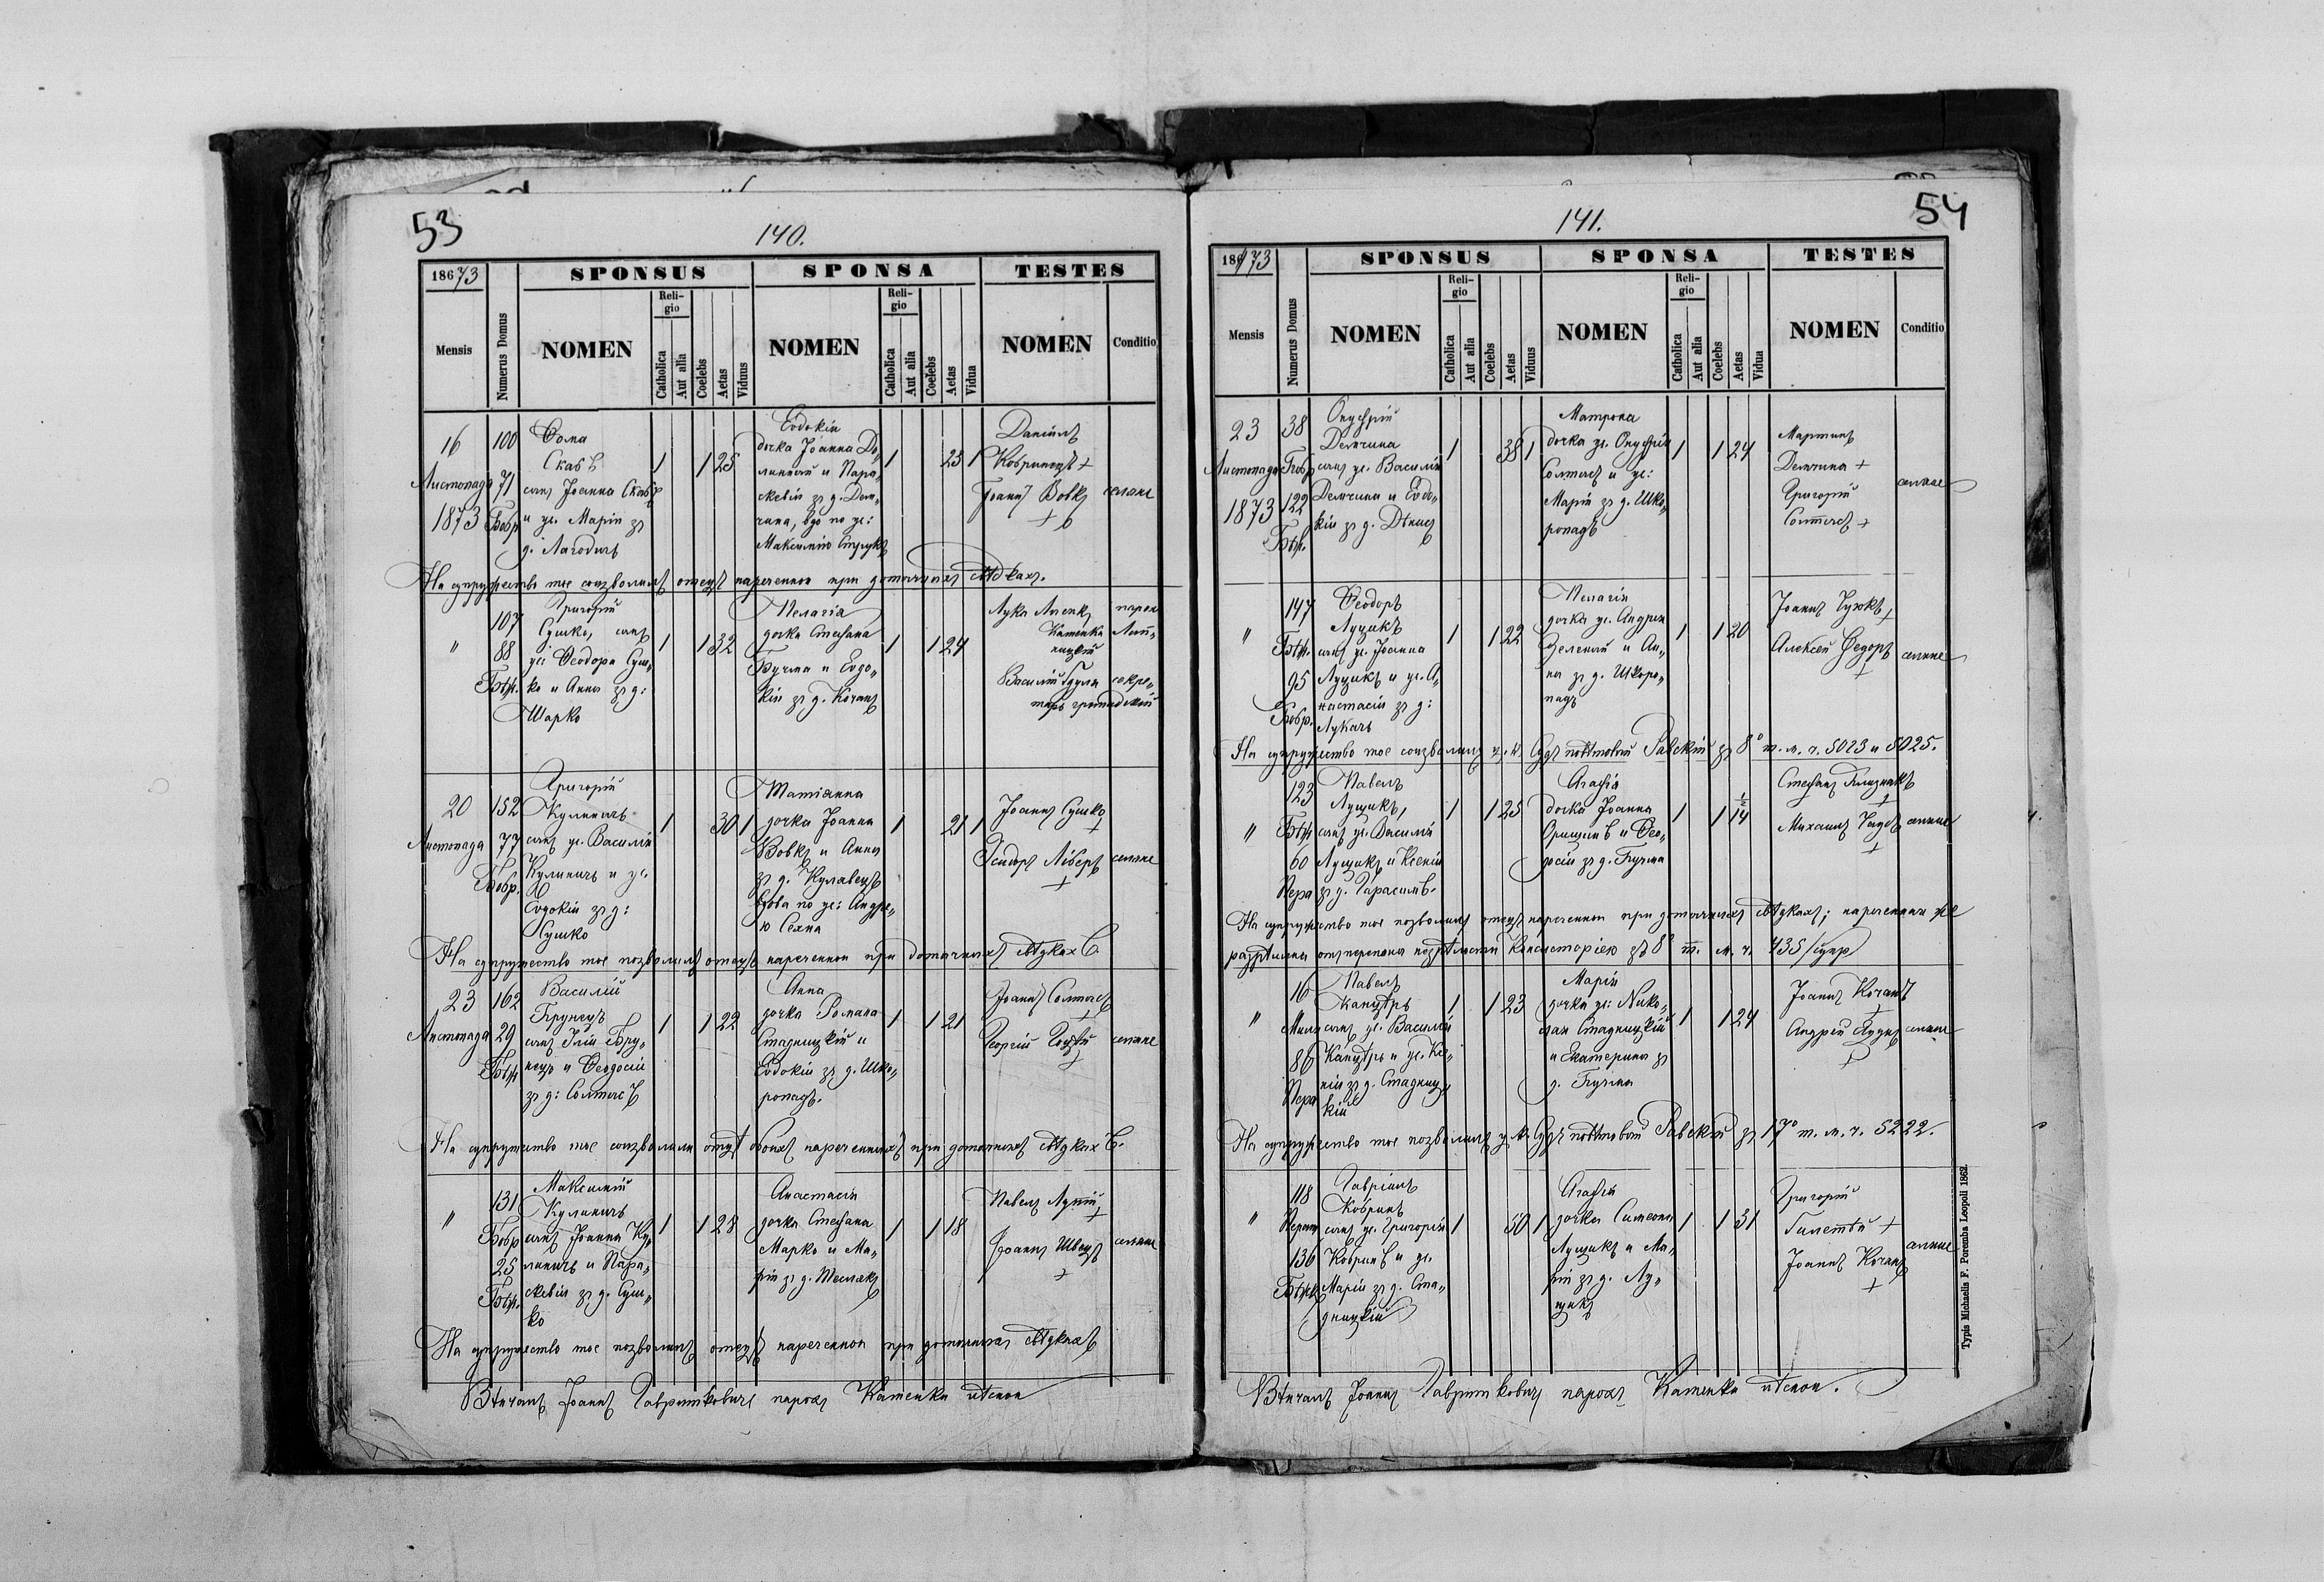 53
140.
18673
SPONSUS
SPONSA
TESTES
Mensis
Numerus Domus
NOMEN
Religio
Catholica
Aut alia
Coelebs
Aetas
Viduus
NOMEN
Religio
Catholica
Aut alia
Coelebs
Aetas
Vidua
NOMEN
Conditio
16
Листопада
1873
100
71
Бобр.
Фома
Скабъ
сынъ Іоанна Скабъ
и ум. Маріи зъ
д. Лагодичъ
1
1
25
Евдокія
дочка Іоанна До„
и Пара„
скевіи зъ д. Дем„
чина, вдо по ум:
1
23
1
Даніилъ
+
Іоаннъ Вовкъ
+
селяне
На супружество тое соизволилъ отецъ нареченнои при доточныхъ свѣдкахъ.
"
107
88
Бѣл.
Григорій
Сушко, сынъ
ум: Феодора Суш„
ко и Анны зъ д:
Шарко
1
1
32
Пелагіа
дочка Стефана
Бучма и Евдо„
кіи зъ д. Кочанъ
1
1
24
Лука
Каменка
Василій
секре„
таръ громадскій
20
Листопада
152
77
Бобр.
Григорій
Куликичъ
сынъ ум. Василія
Куликичъ и ум.
Евдокіи зъ д:
Сушко
1
30
1
Татіанна
дочка Іоанна
Вовкъ и Анны
зъ д. Кулавецъ
вдова по ум: Андре„
ю Сехна
1
21
1
Іоаннъ Сушко
+
+
селяне
На супружество тое позволилъ отецъ нареченнои при доточныхъ свѣдкахъ
23
Листопада
162
29
Бѣл.
Василій
Брунецъ
сынъ Іліи Бру„
нецъ и Феодосіи
зъ д: Солтысъ
1
1
22
Анна
дочка Романа
Стадницкій и
Евдокіи зъ д. Шко„
ропадъ.
1
1
21
Іоаннъ Солтысъ
+
Георгій
+
селяне
На супружество тое соизволили отцы обоихъ нареченныхъ при доточныхъ свѣдкахъ
"
131
Бобр
25
Бѣл.
Максимій
Куликичъ
сынъ Іоанна Ку„
ликичъ и Пара„
скевіи зъ д. Суш„
ко
1
1
28
Анастасія
дочка Стефана
Марко и Ма„
ріи зъ д. Теслякъ
1
1
18
Павелъ
+
Іоаннъ Швецъ
+
селяне
На супружество тое позволилъ отецъ нареченнои при доточныхъ свѣдкахъ
Вѣнчалъ Іоаннъ Гавришковичъ парохъ Каменки
54
141.
18673
SPONSUS
SPONSA
TESTES
Mensis
Numerus Domus
NOMEN
Religio
Catholica
Aut alia
Coelebs
Aetas
Viduus
NOMEN
Religio
Catholica
Aut alia
Coelebs
Aetas
Vidua
NOMEN
Conditio
23
Листопада
1873
38
Бобр
122
Бѣл.
Онуфрій
Демчина
сынъ ум. Василія
Демчина и Евдо„
кіи зъ д. Дѣкисъ
1
38
1
Матрона
дочка ум. Онуфрія
Солтысъ и ум:
Маріи зъ д. Шко„
ропадъ
1
1
24
Мартинъ
Демчина +
Григорій
Солтысъ +
селяне
"
147
Бѣл.
95
Бобр.
Феодоръ
Лущикъ
сынъ ум. Іоанна
Лущикъ и ум. А„
настасіи зъ д:
Лукачъ
1
1
22
Пелагія
дочка ум. Андрея
Зеленый и Ан„
ны зъ д. Шкоро„
падъ
1
1
20
Іоаннъ
+
Алексей Федоръ
+
селяне
На супружество тое соизволилъ ц. к. Судъ повѣтовый Равскій зъ 8º т. м. ч. 5023 и 5025.
"
123
Бѣл
60
Пера
Павелъ
Лущикъ,
сынъ ум. Василія
Лущикъ и Ксеніи
зъ д. Гарасимъ.
1
1
25
Агафія
дочка Іоанна
и Фео„
досіи зъ д. Бучма
1
1
½
14
Стефанъ
+
Михаилъ
+
селяне
На супружество тое позволилъ отецъ нареченнои при доточныхъ свѣдкахъ; нареченная же
Консисторіею зъ 8º т. м. ч. 435/супр
"
16
86
Пера
Павелъ
Канудръ
сынъ ум. Василія
Канудръ и ум. Ксе„
ніи зъ д. Стадниц„
кій
1
1
23
Марія
дочка ум: Нико„
лая Стадницкій
и Екатерины зъ
д. Бучма
1
1
24
Іоаннъ Кочанъ
+
Андрей
+
селяне
На супружество тое позволилъ ц. к. Судъ повѣтовый Равскій зъ 17º т. м. ч. 5222.
"
118
136
Бѣл.
Гавріилъ
Кобринъ
сынъ ум. Григорія
Кобринъ и ум.
Маріи зъ д. Ста„
дницкій
1
50
1
Агафія
дочка Симеона
Лущикъ и Ма„
ріи зъ д. Лу„
щикъ
1
1
31
Григорій
+
Іоаннъ Кочанъ
+
селяне
Вѣнчалъ Іоаннъ Гавришковичъ парохъ Каменки
Typis Michaelis F. Poremba Leopoli 1862.